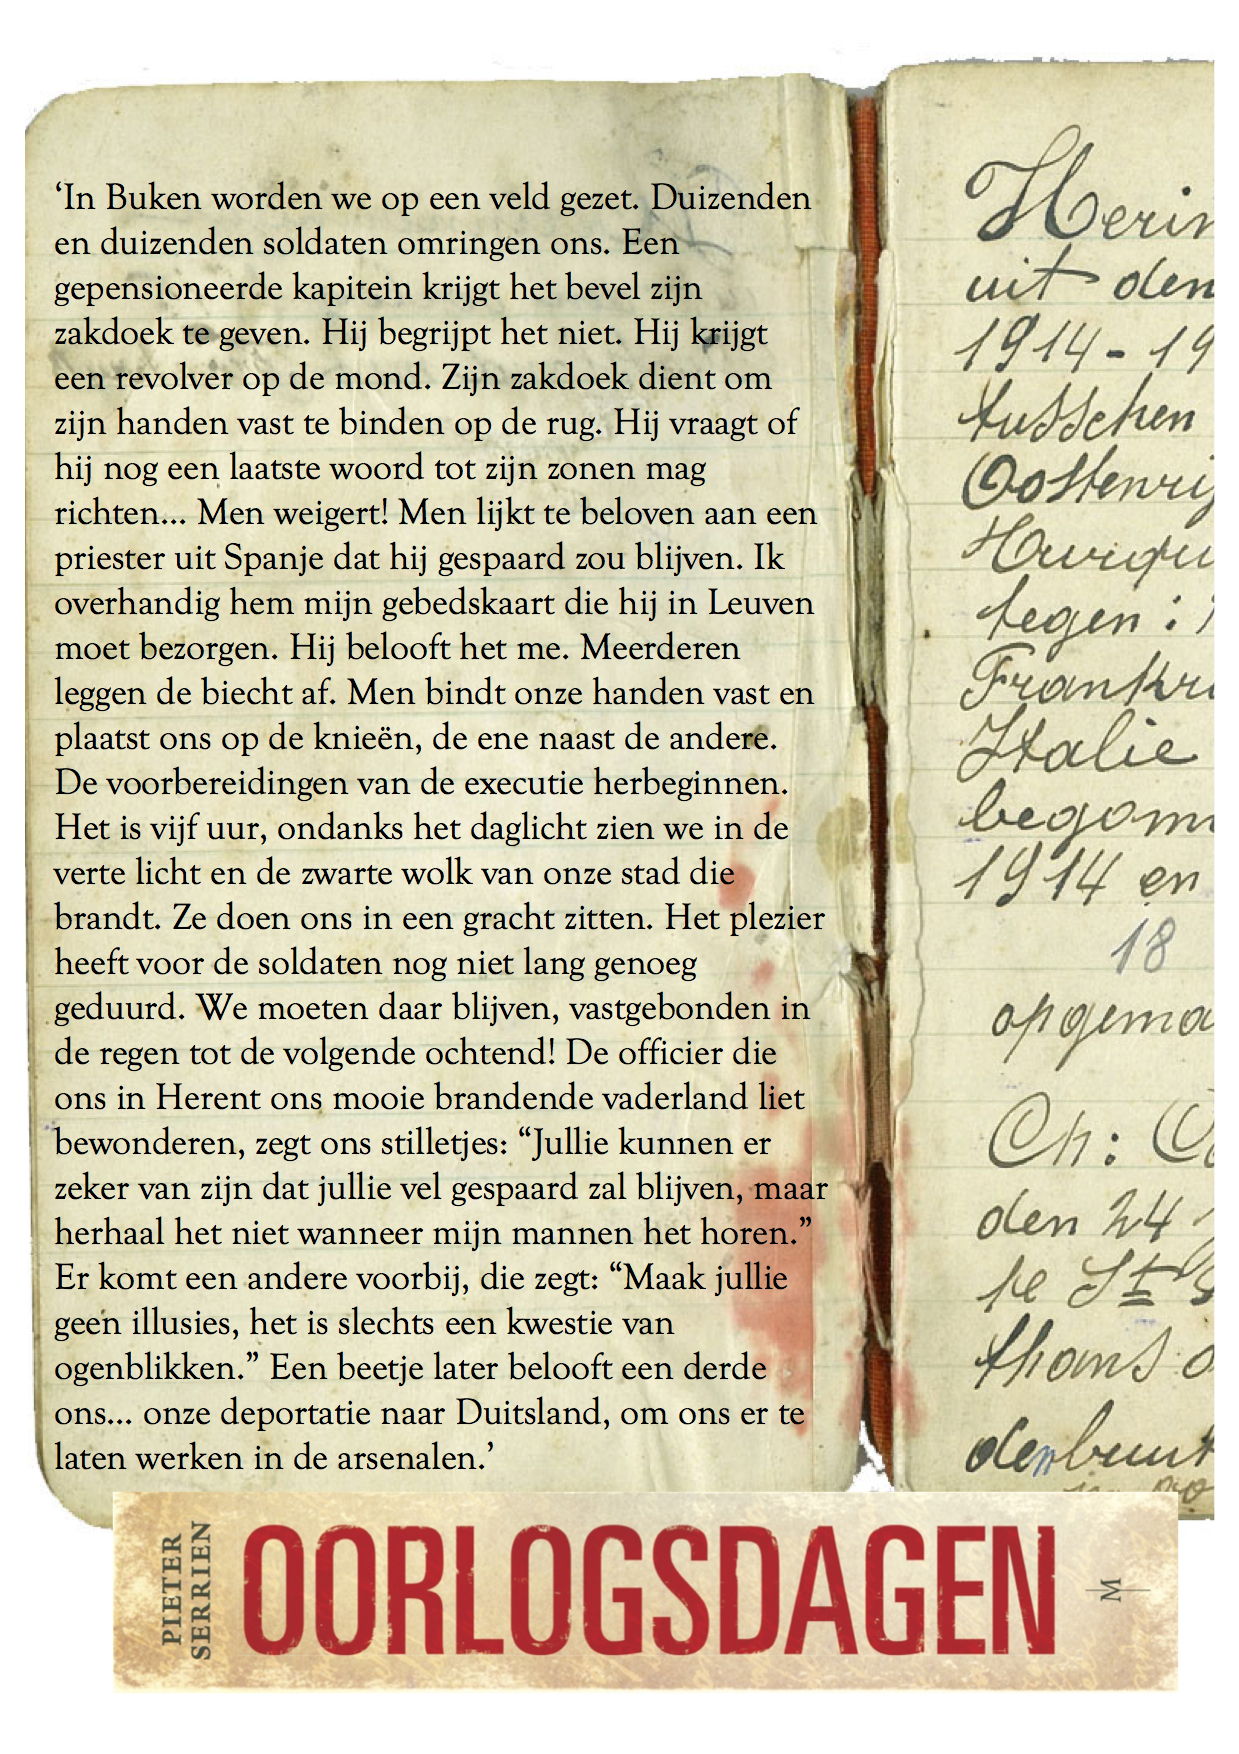 ‘In Buken worden we op een veld gezet. Duizenden
en duizenden soldaten omringen ons. Een
gepensioneerde kapitein krijgt het bevel zijn
zakdoek te geven. Hij begrijpt het niet. Hij krijgt
een revolver op de mond. Zijn zakdoek dient om
zijn handen vast te binden op de rug. Hij vraagt of
hij nog een laatste woord tot zijn zonen mag
richten... Men weigert! Men lijkt te beloven aan een
priester uit Spanje dat hij gespaard zou blijven. Ik
overhandig hem mijn gebedskaart die hij in Leuven
moet bezorgen. Hij belooft het me. Meerderen
leggen de biecht af. Men bindt onze handen vast en
plaatst ons op de knieën, de ene naast de andere.
De voorbereidingen van de executie herbeginnen.
Het is vijf uur, ondanks het daglicht zien we in de
verte licht en de zwarte wolk van onze stad die
brandt. Ze doen ons in een gracht zitten. Het plezier
heeft voor de soldaten nog niet lang genoeg
geduurd. We moeten daar blijven, vastgebonden in
de regen tot de volgende ochtend! De officier die
ons in Herent ons mooie brandende vaderland liet
bewonderen, zegt ons stilletjes: “Jullie kunnen er
zeker van zijn dat jullie vel gespaard zal blijven, maar
herhaal het niet wanneer mijn mannen het horen.”
Er komt een andere voorbij, die zegt: “Maak jullie
geen illusies, het is slechts een kwestie van
ogenblikken.” Een beetje later belooft een derde
ons... onze deportatie naar Duitsland, om ons er te
laten werken in de arsenalen.’
Herin
uit den
1914-19
tusschen
Oostenrij
tegen:
Frankri
Italie
1914 en
18
opgema
Ch:
den 24
thans
PIETER
SERRIEN
OORLOGSDAGEN
M